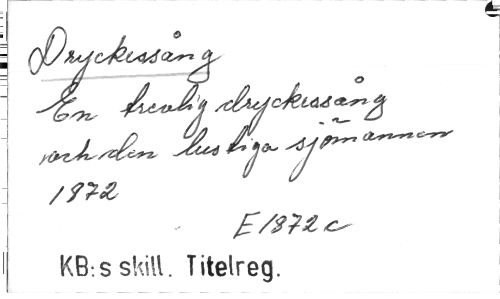 Dryckessång
En trevlig dryckessång
och den lustiga sjömannen
1872
E 1872 c
KB:s skill. Titelreg.